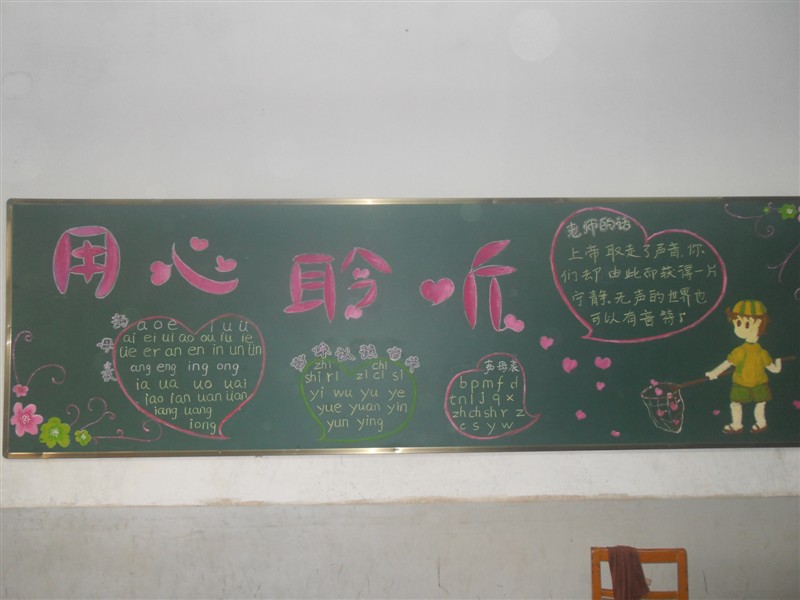 用心聆听
韵母表
a o e i u ü
ai ei ui ao ou iu ie
üe er an en in un ün
ang eng ing ong
ia ua uo uai
iao ian uan üan
iang uang
iong
整体认读音节
zhi chi
shi ri zi ci si
yi wu yu ye
yue yuan yin
yun ying
声母表
b p m f d
t n l j q x
zh ch sh r z
c s y w
老师的话
上帝取走了声音,你
们却由此却获得一片
宁静、无声的世界也
可以有音符!